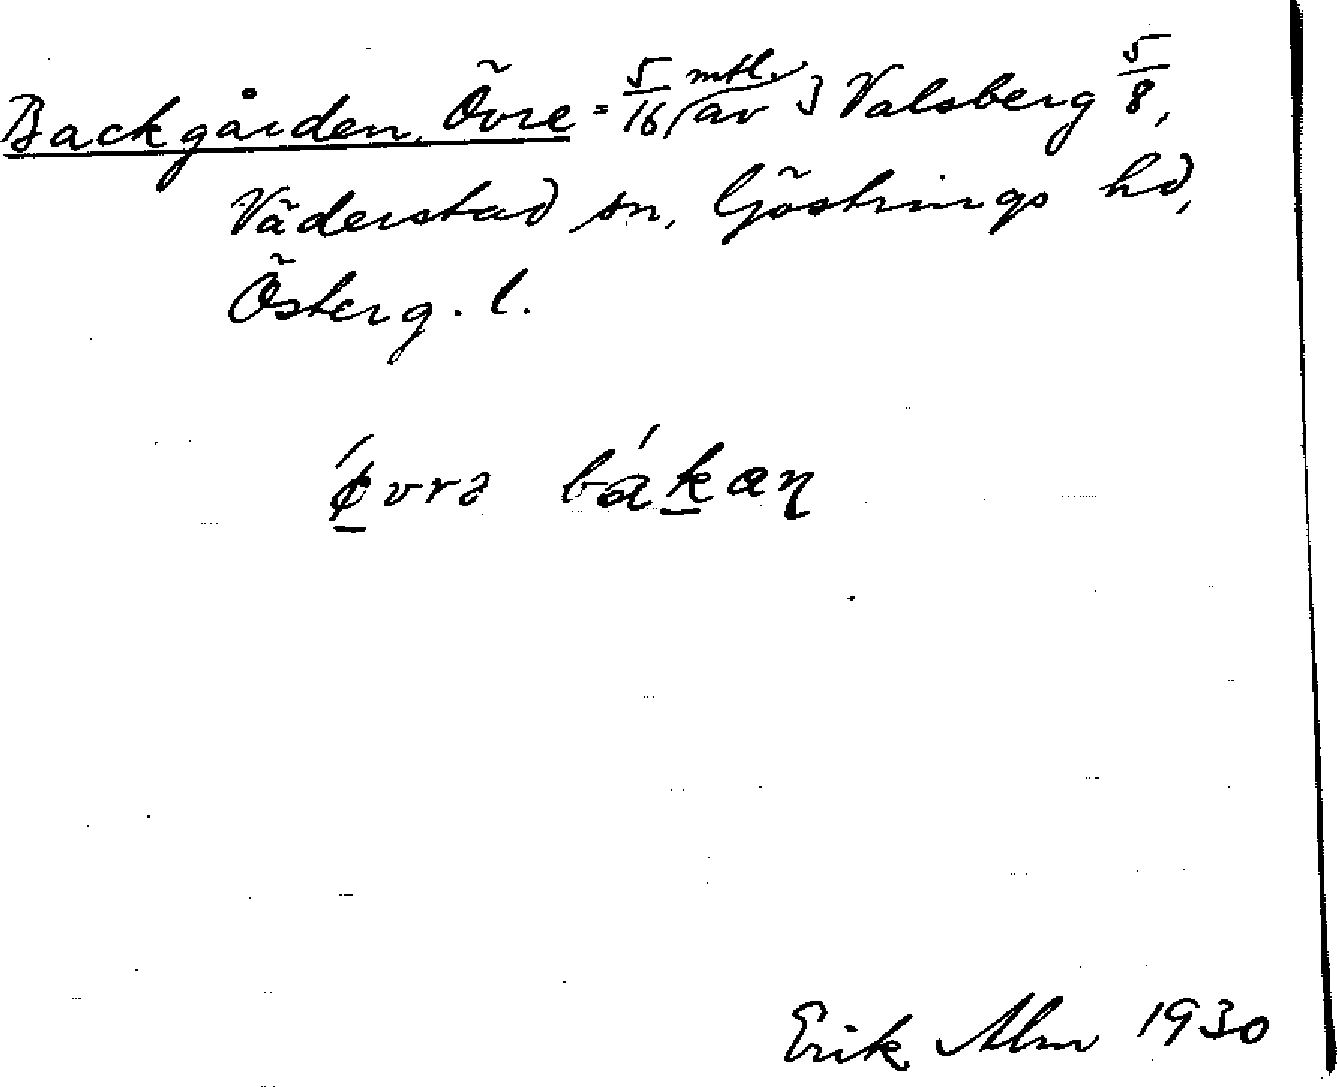 Backgården, Övre = 5/16 mtl. av } Valsberg 5/8,
Väderstad sn, Göstrings hd,
Österg. l.
ǿvrə bákaɳ
Erik Alm 1930